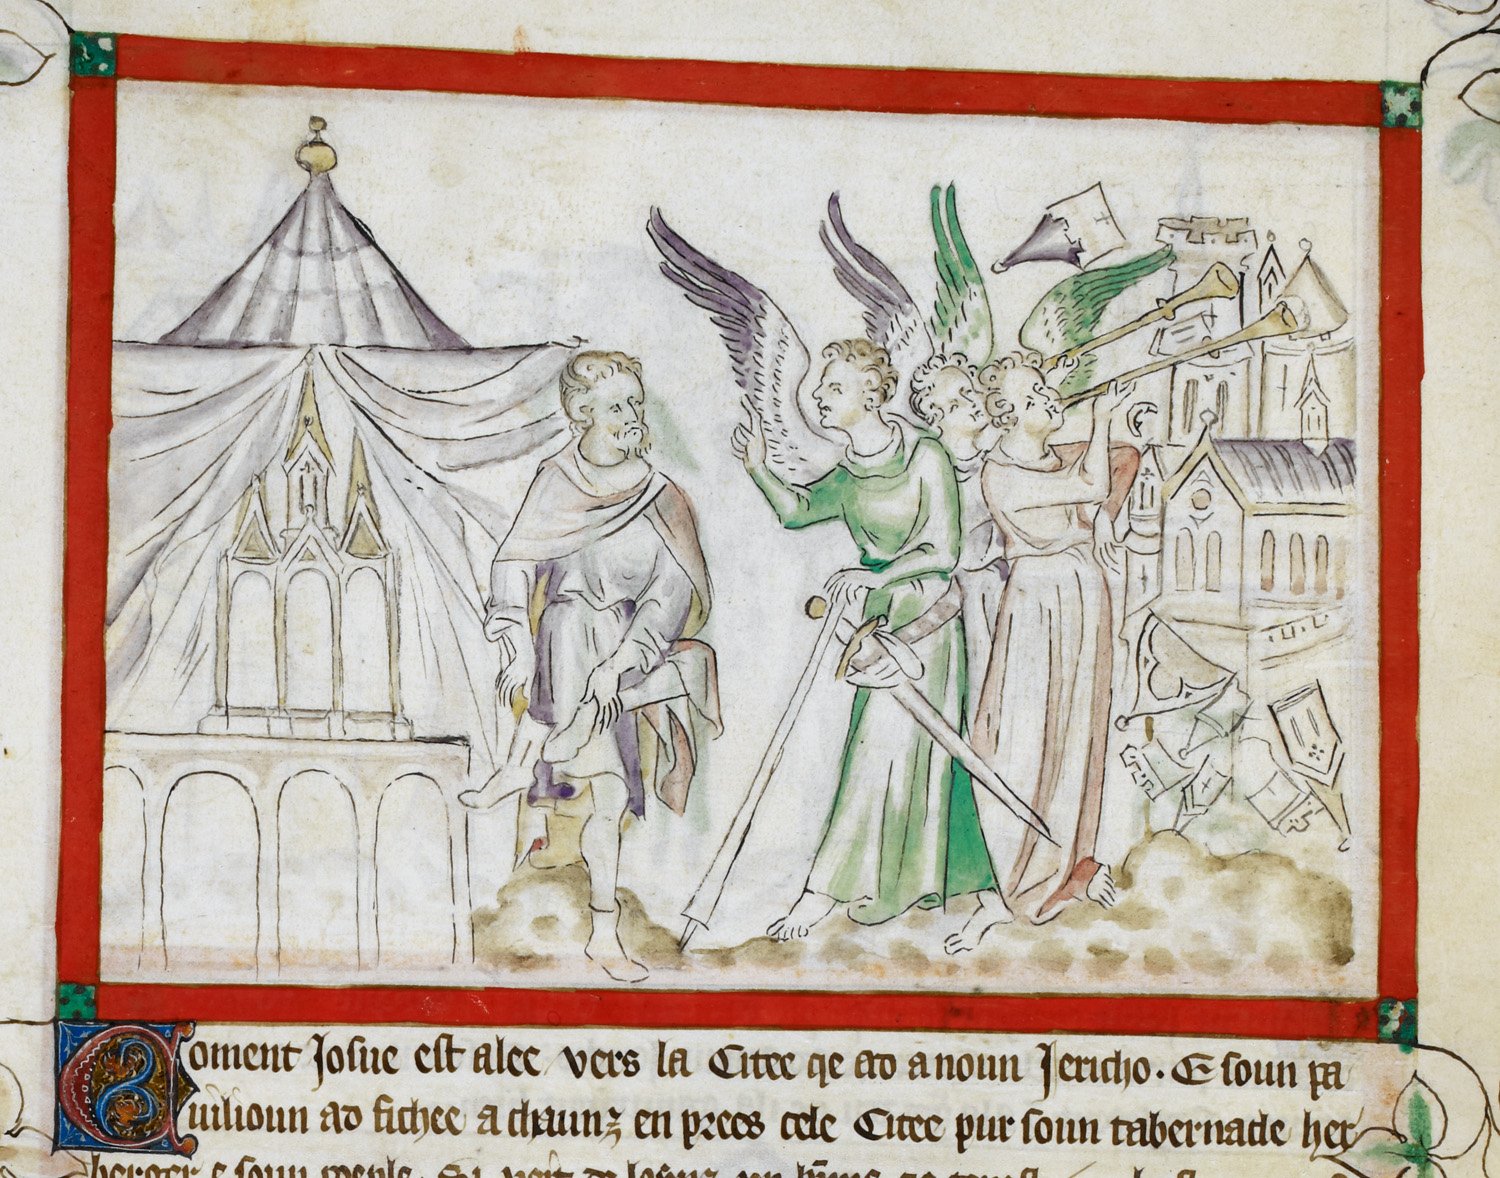 Coment Josue est alee vers la Citee qe ad a noun Jericho. E soun pa
uilioun ad fichee a chaunz en prees cele Citee pur soun tabernacle her
berger e soun poeple.